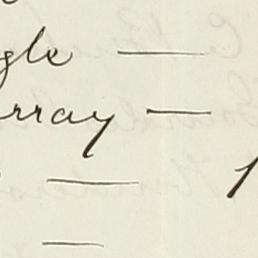 gle —
rray —
— 1
—